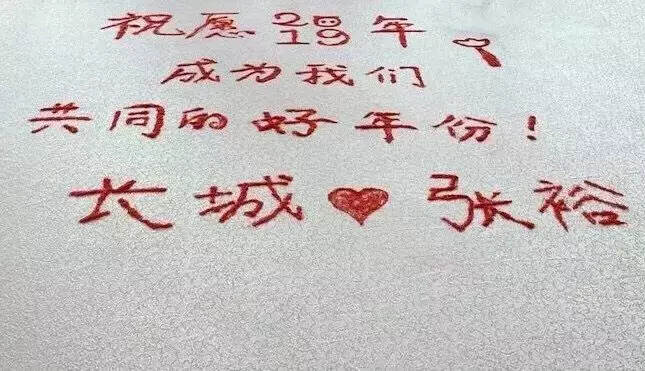 祝愿2019年
成为我们
共同的好年份！
长城❤张裕